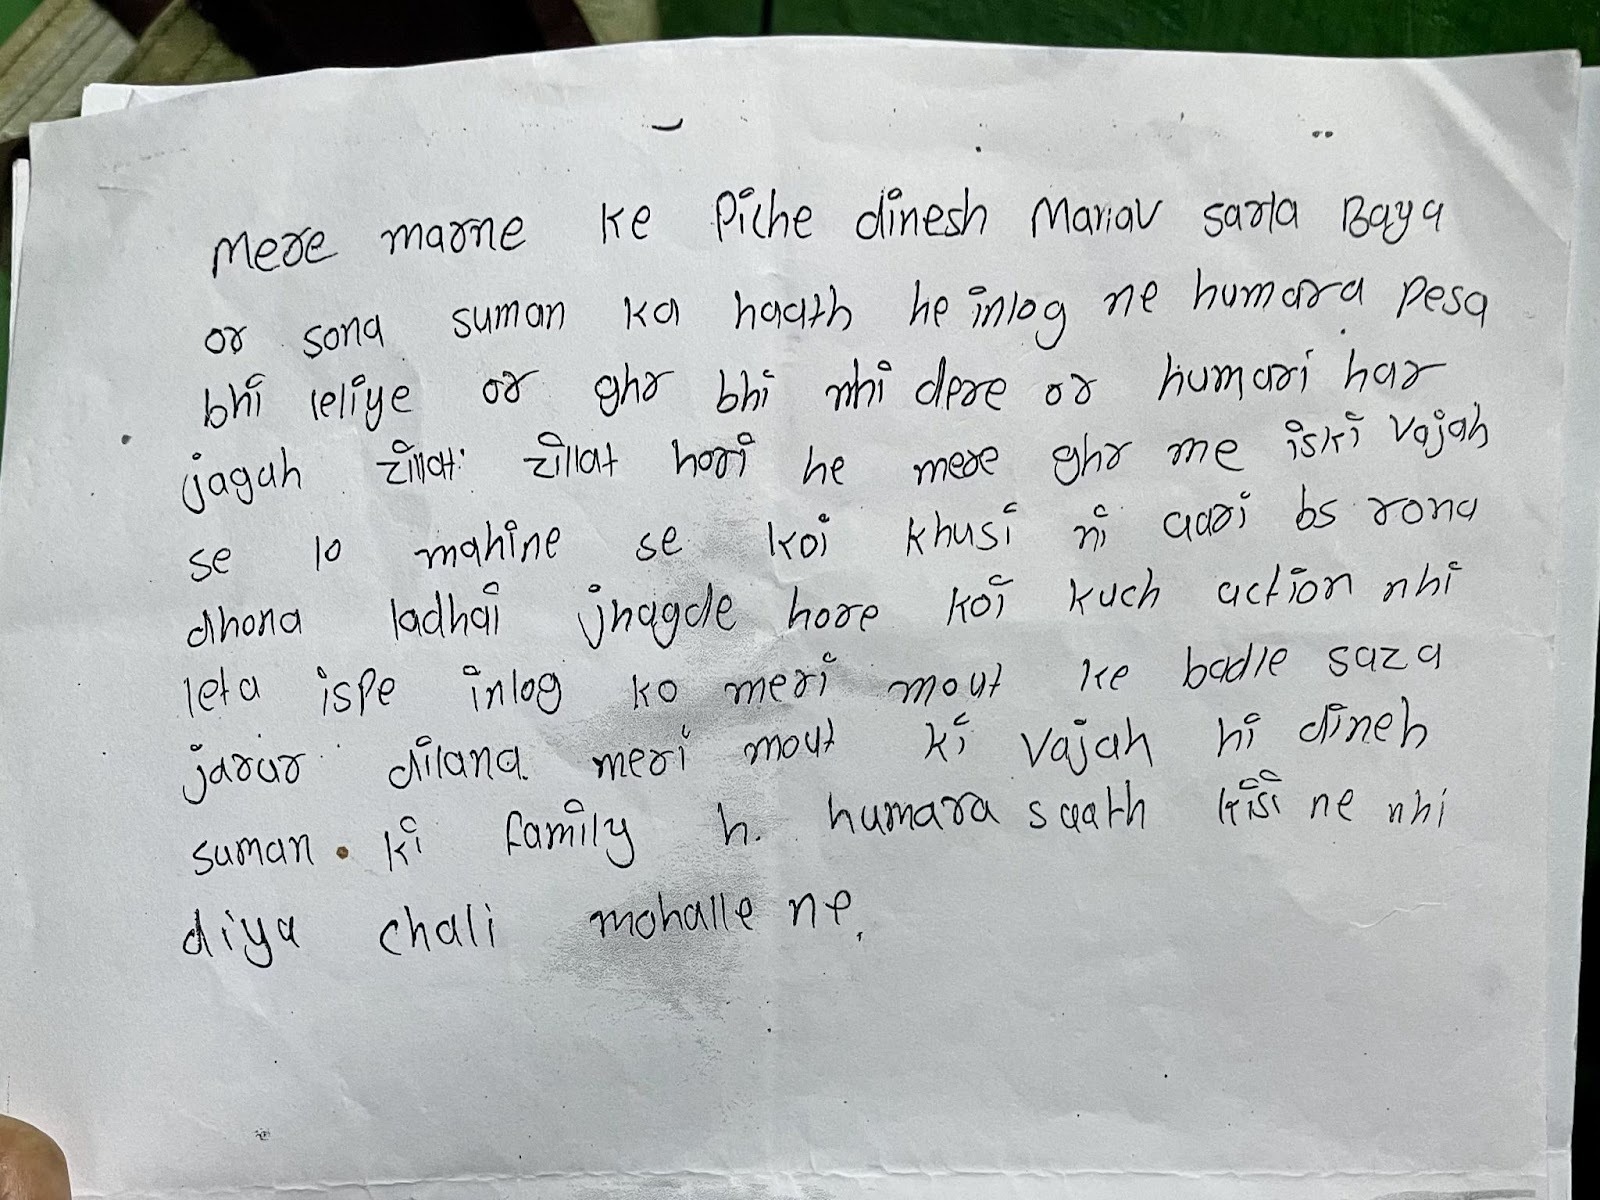 Mere marne ke Piche dinesh Manav sarla Baya
or sona suman ka haath he inlog ne humara pesa
bhi leliye or ghr bhi nhi dere or humari har
jagah hori he mere ghr me iski vajah
se 10 mahine se koi khusi ni aari bs rona
dhona ladhai jhagde hore koi kuch action nhi
leta ispe inlog ko meri mout ke badle saza
jarur dilana meri mout ki vajah hi dineh
suman ki family h. humara saath kisi ne nhi
diya chali mohalle ne.